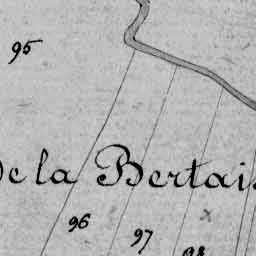 95
de la Bertais
96
97
98